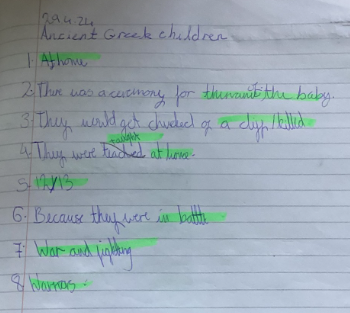 29.4.24
Ancient Greek children
1. At home
2. There was a ceremony for the baby.
3. They would get chucked of a clif/killed
4. They were taught at home.
5. 12/13
6. Because they were in battle
7. War and fighting
8. Warriors.